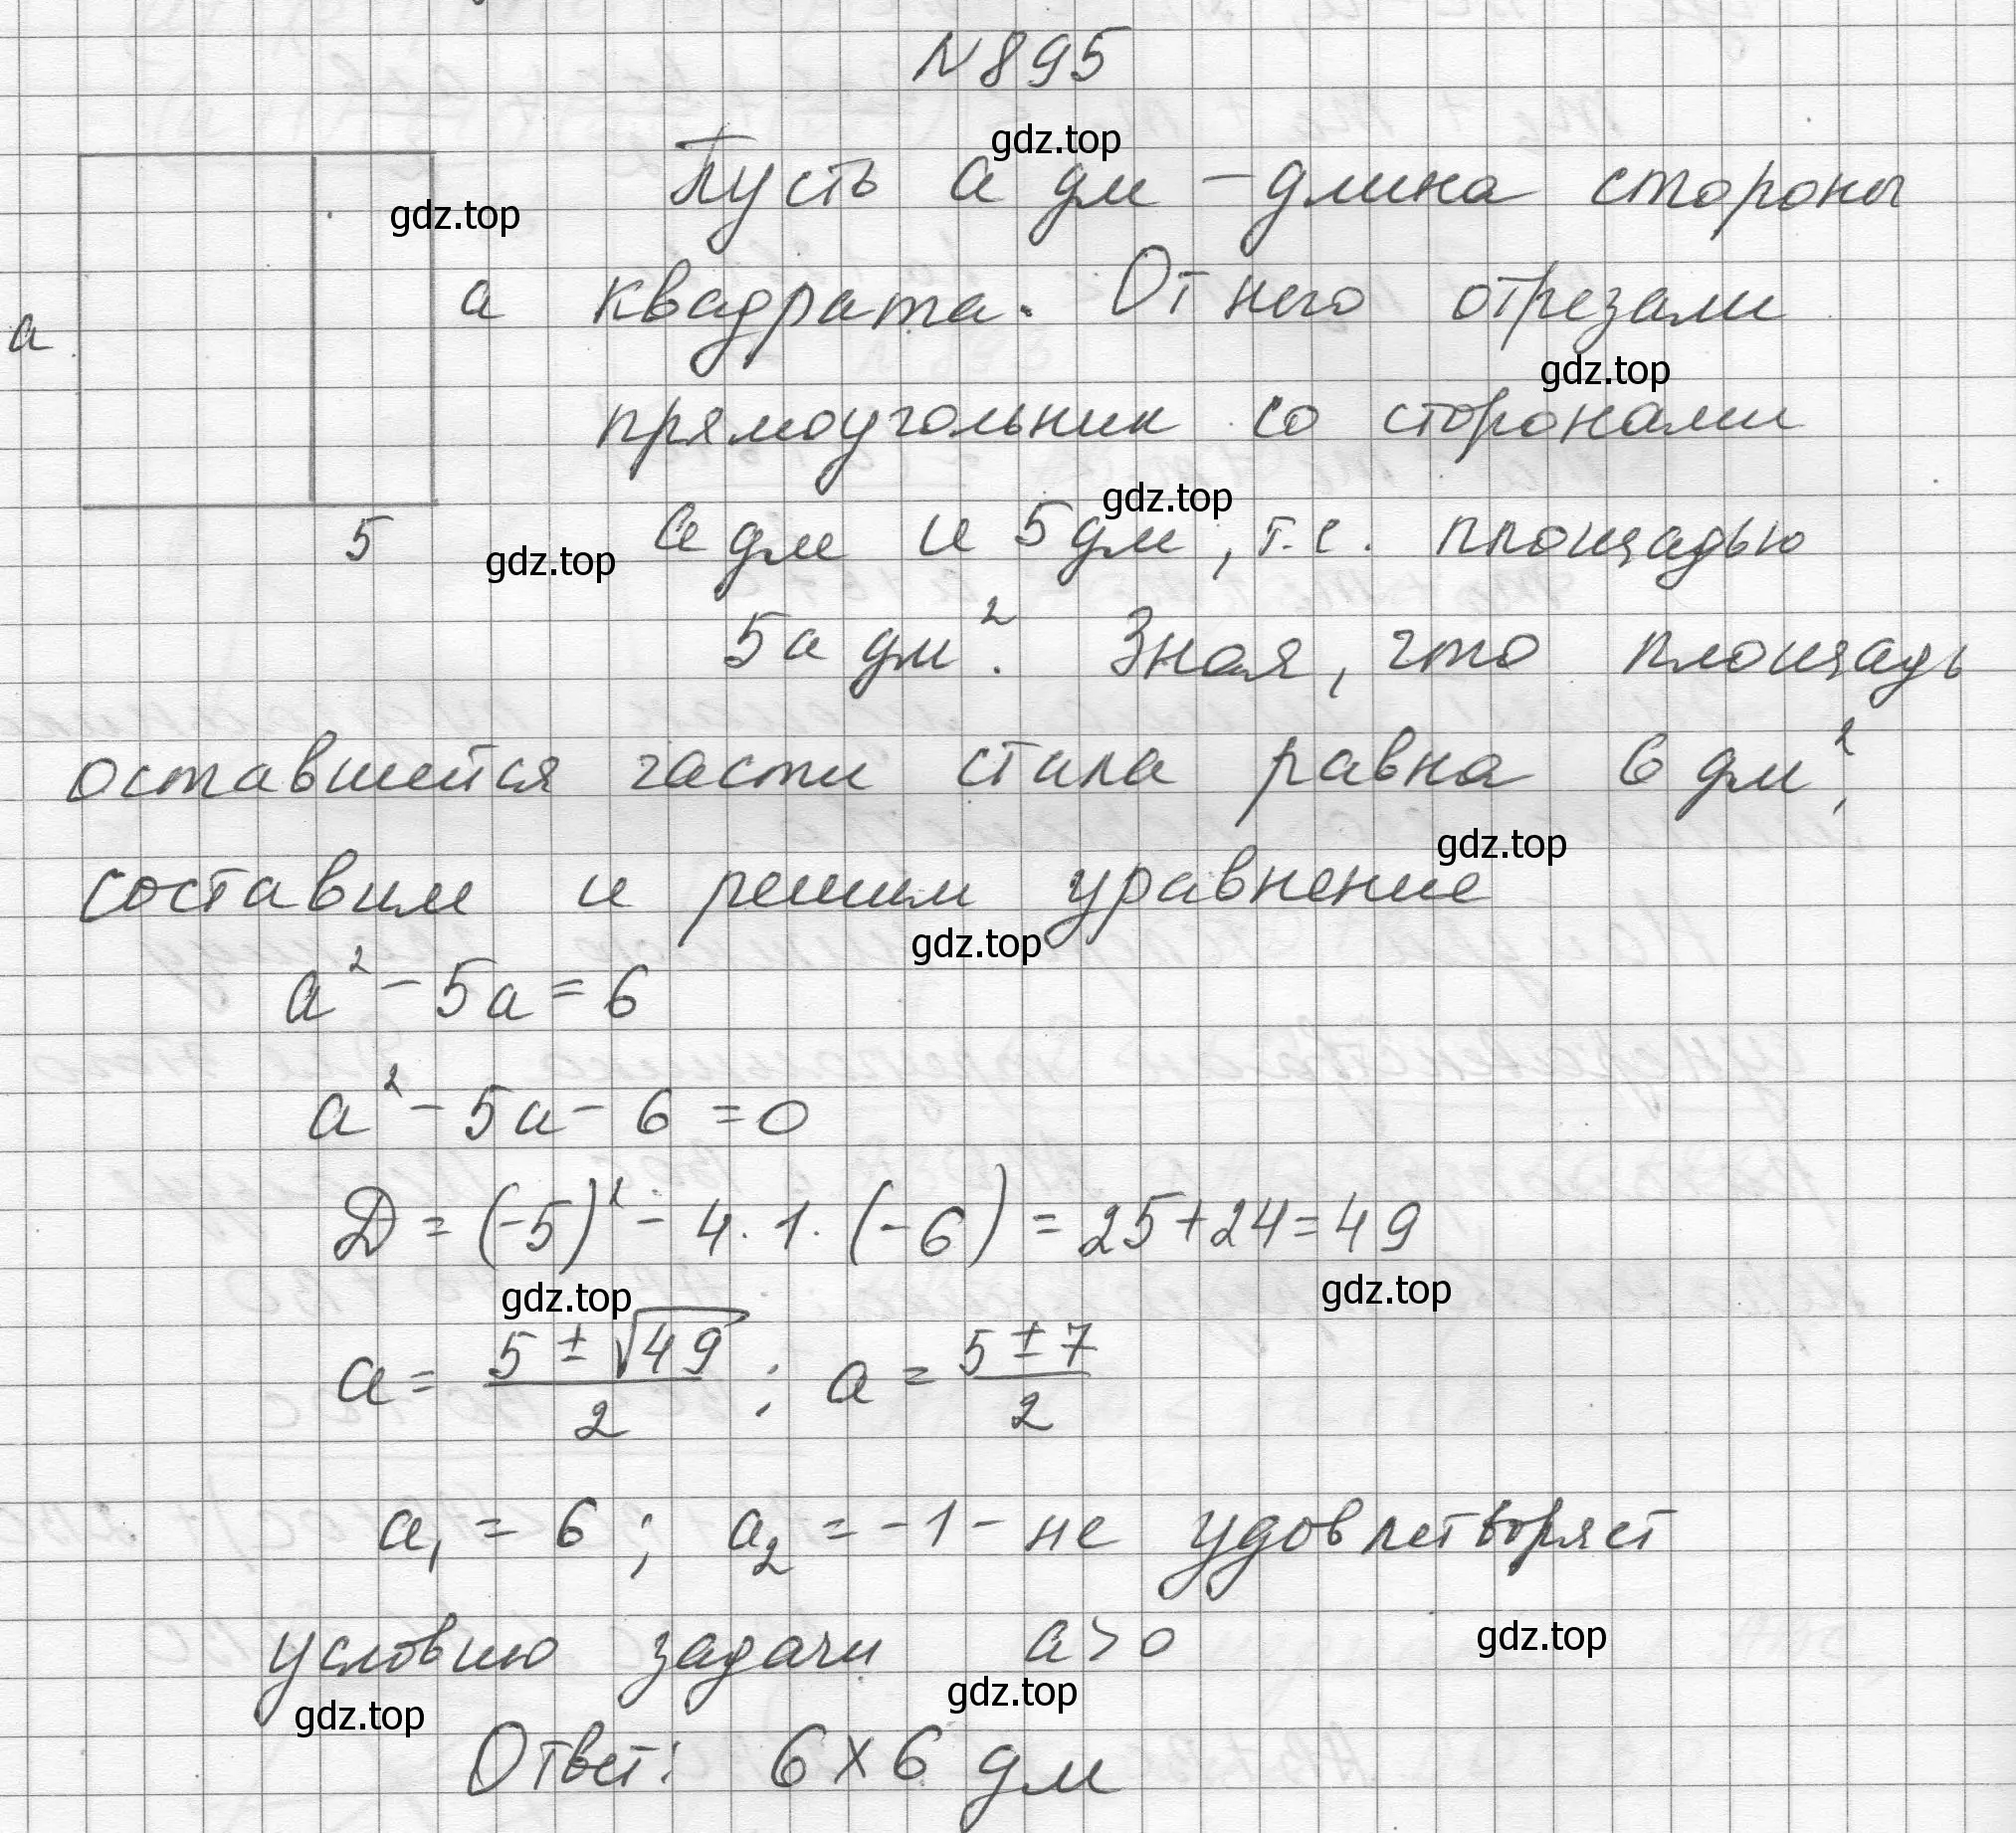 N 895
gdz.top
Пусть a дм – длина стороны
gdz.top
a
a
квадрата. От него отрезали
gdz.top
прямоугольник со сторонами
gdz.top
5
gdz.top
a дм и 5 дм, т.е. площадью
5a дм². Зная, что площадь
оставшейся части стала равна 6 дм²,
gdz.top
составим и решим уравнение
gdz.top
a² – 5a = 6
a² – 5a – 6 = 0
D = (–5)² – 4 · 1 · (–6) = 25 + 24 = 49
gdz.top
gdz.top
a = (5 ± √49)/2 ; a = (5 ± 7)/2
a₁ = 6 ; a₂ = –1 – не удовлетворяет
условию задачи a > 0
gdz.top
gdz.top
gdz.top
Ответ: 6 × 6 дм